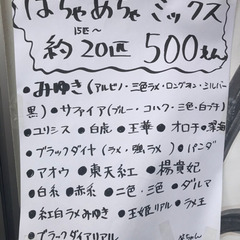 はちゃめちゃミックス
15匹〜
約20匹 500もん
• みゆき(アルビノ・三色ラメ・ロングヨン・シルバー
黒) • サファイア(ブルー・コハク・三色・白ブチ)
• ユリシス • 白虎 • 王華 • オロチ • 深海
• ブラックダイヤ(ラメ・強ラメ) • パンダ
• アオウ • 東天紅 • 楊貴妃
• 白糸 • 赤糸 • 二色・三色 • ダルマ
• 紅白ラメみゆき • 王妃リアル • ラメ王
• ブラックダイアリアル